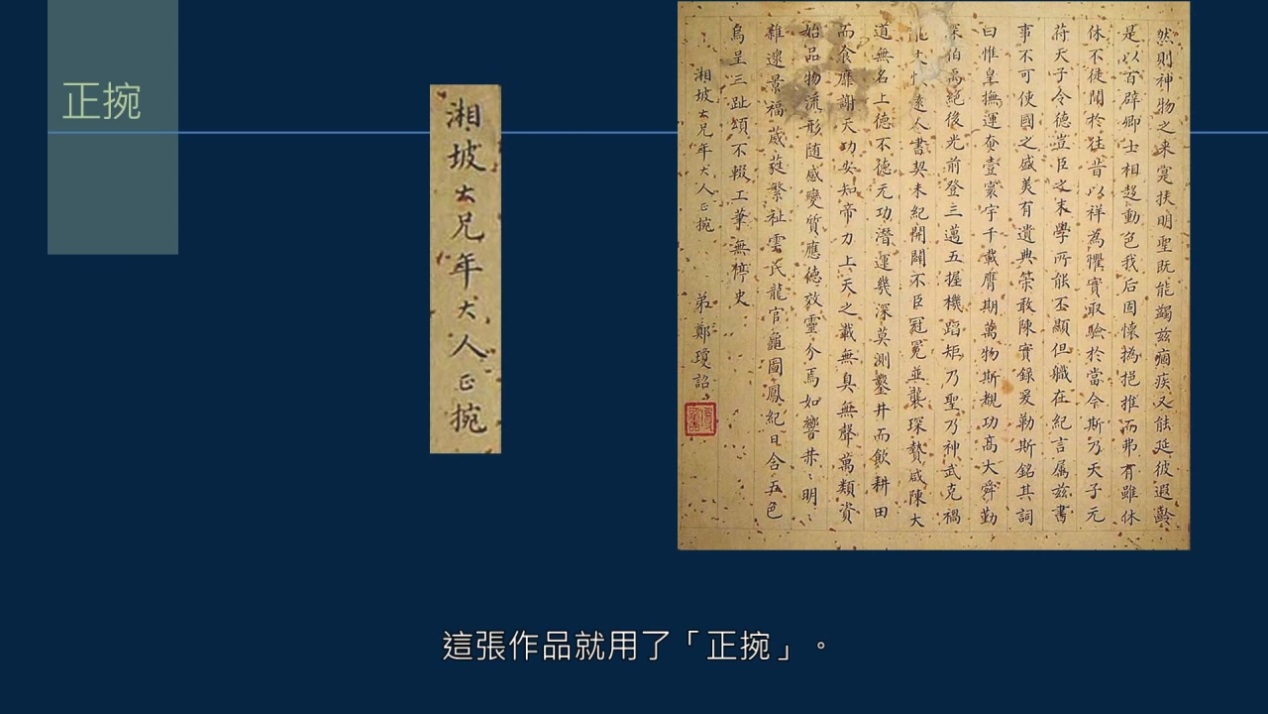 正捥
湘坡大兄年大人正捥
然則神物之来寔扶明聖既能蠲兹痼疾又能延彼遐齡
是以百辟卿士相趍動色我后固懷撝挹推而弗有雖休
休不徒聞於往昔以祥為懼實取驗於當今斯乃天子元
苻天子令德豈臣之末學所能丕顯但職在紀言属兹書
事不可使國之盛美有遺典策敢陳實錄爰勒斯銘其詞
曰惟皇撫運奄壹寰宇千載膺期萬物斯覩功髙大舜勤
深伯禹絕後光前登三邁五握機蹈矩乃聖乃神武克禍
遠人書契未紀開闢不臣冠冕並襲琛贄咸陳大
道無名上德不德元功潜運幾深莫測鑿井而飲耕田
而食靡謝天功安知帝力上天之載無臭無聲萬類資
始品物流形随感變質應德效靈介焉如響赫〻明〻
雜遝景福葳蕤繁祉雲氏龍官龜圖鳳紀日含五色
烏呈三趾頌不輟工筆無停史
湘坡大兄年大人正捥 弟鄭瓊詔
這張作品就用了「正捥」。